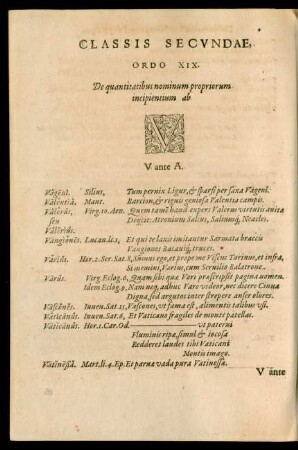 CLASSIS SECVNDAE,
ORDO XIX.
De quantitatibus nominum propriorum
incipientium ab
V
V ante A.
Silius, Tum pernix Ligur, & sparsi per saxa Vageni.
Mant. & riguis geniosa Valentia campis.
Virg. 10. Aen. Quem tamē haud expers Valerus virtutis auitæ
seu Deijcit: Atronium Salius, Saliumq; Nealces.
Lucan. li. 1, Et qui te laxis imitantur Sarmata braccis
Vangiones: Bataniq; truces.
Hor. 2. Ser. Sat. 8, Summus ego, et prope me Viscus Turinus, et infra,
Si memini, Varius, cum Seruilio Balatrone.
Virg. Eclog. 6, Quam sibi quæ Vari præscripsit pagina nomen.
Idem Eclog. 9, Nam neq; adhuc Varo videor, nec dicere Cinna
Digna, sed argutos inter strepere anser olores.
Iuuen. Sat. 15, Vascones, vt fama est, alimentis talibus vsi.
Iuuen. Sat. 6, Et Vaticano fragiles de monte patellas.
Hor. 1. Car. Od. vt paterni
Fluminis ripæ, simul & iocosa
Redderet laudes tibi Vaticani
Montis imago.
Mart. li. 4. Ep: Et parua vada pura Vatinessæ.
V ante